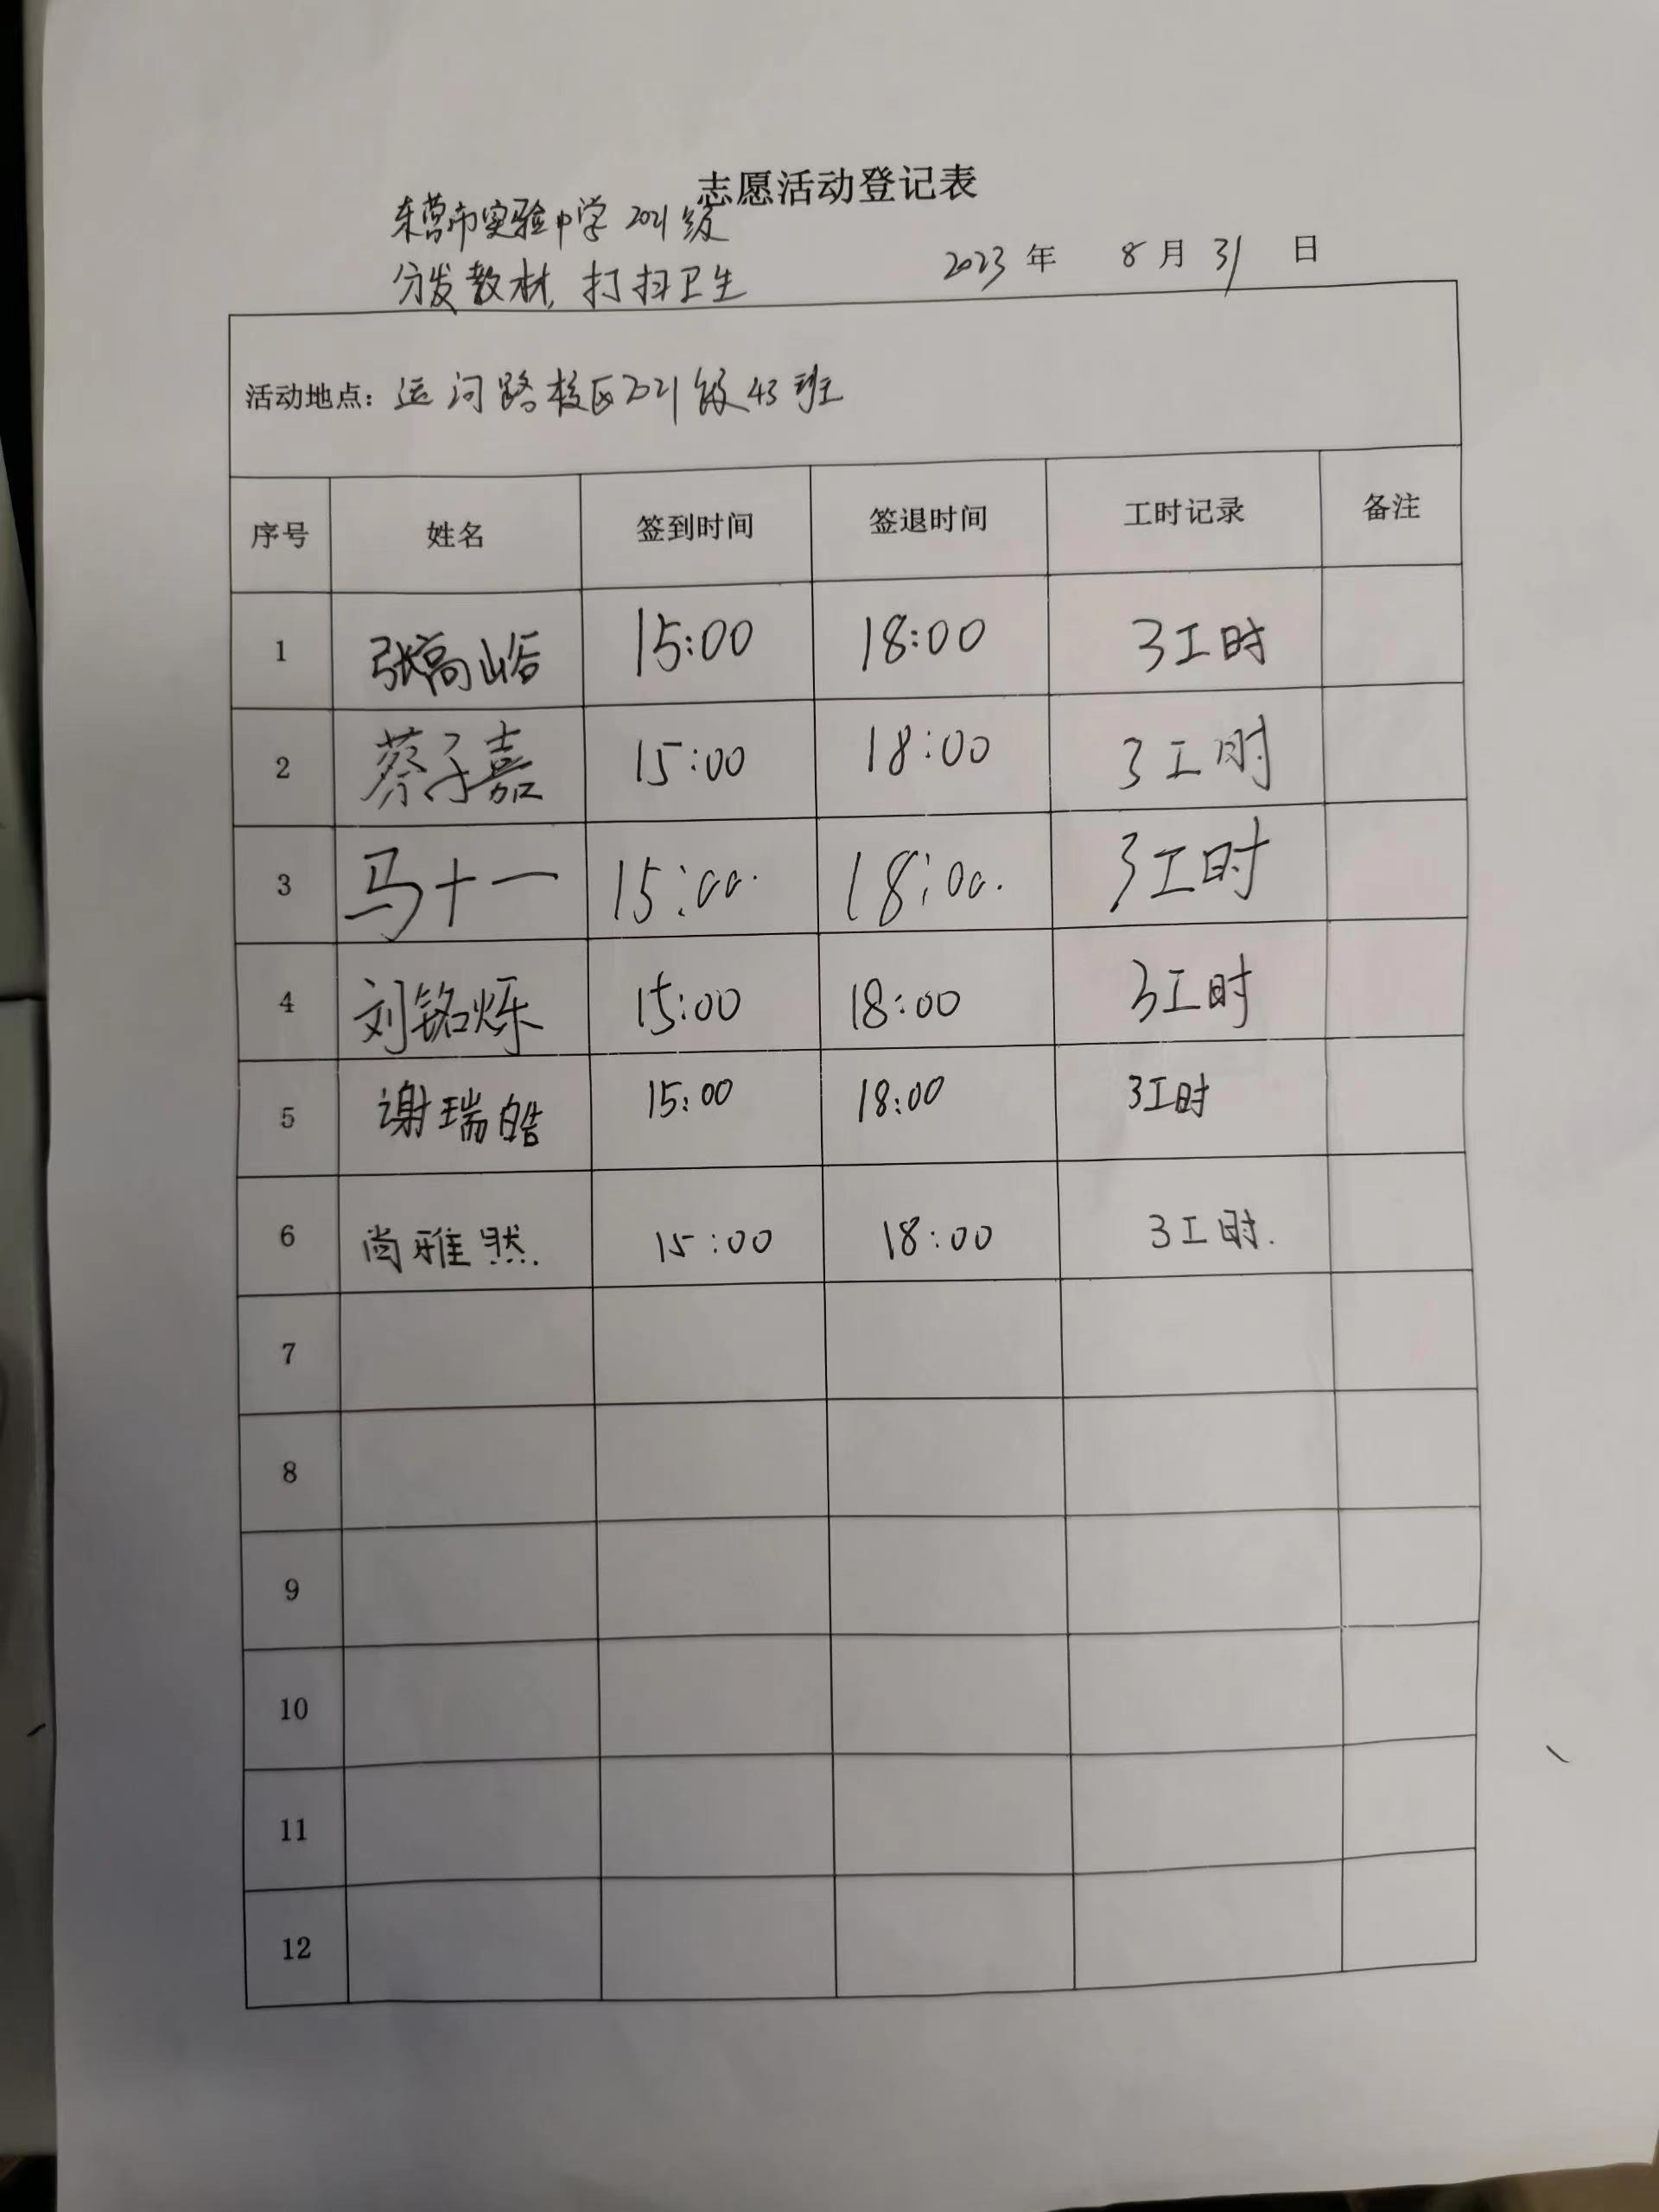 志愿活动登记表
东营市实验中学 2021级
分发教材, 打扫卫生
2023 年 8 月 31 日
活动地点: 运河路校区2021级43班
序号 姓名 签到时间 签退时间 工时记录 备注
1 张高峪 15:00 18:00 3工时
2 蔡子嘉 15:00 18:00 3工时
3 马十一 15:00. 18:00. 3工时
4 刘铭烁 15:00 18:00 3工时
5 谢瑞皓 15:00 18:00 3工时
6 尚雅然. 15:00 18:00 3工时.
7
8
9
10
11
12